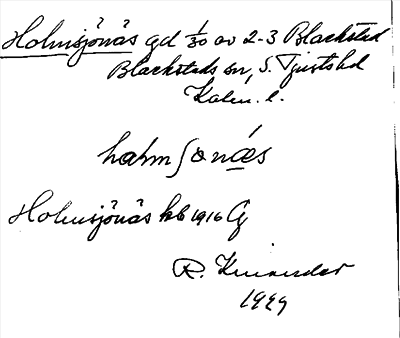 Holmsjönäs gd 1/30 av 2-3 Blackstad
Blackstads sn, S. Tjusts hd
Kalm. l.
holmʃonä́s
Holmsjönäs kb 1916 Äg
R.
1929